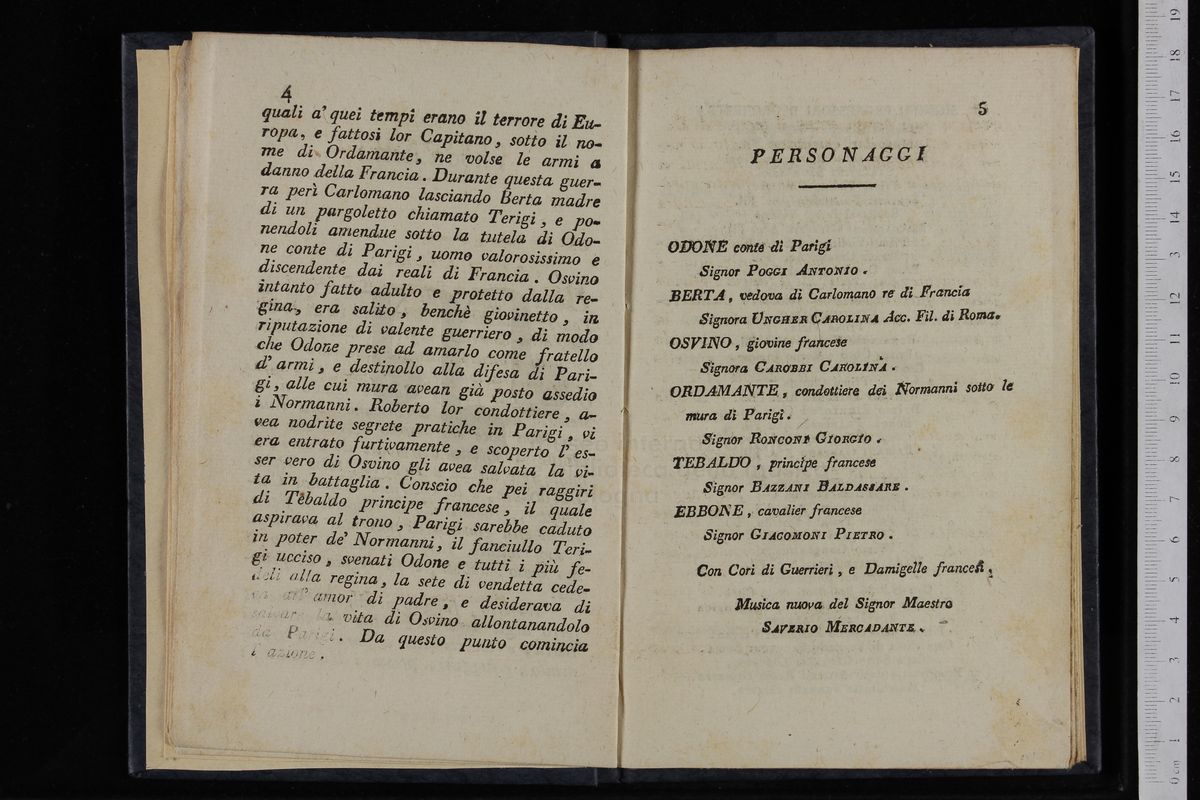 4
quali a' quei tempi erano il terrore di Eu-
ropa, e fattosi lor Capitano, sotto il no-
me di Ordamante, ne volse le armi a
danno della Francia. Durante questa guer-
ra perì Carlomano lasciando Berta madre
di un pargoletto chiamato Terigi, e po-
nendoli amendue sotto la tutela di Odo-
ne conte di Parigi, uomo valorosissimo e
discendente dai reali di Francia. Osvino
intanto fatto adulto e protetto dalla re-
gina, era salito, benchè giovinetto, in
riputazione di valente guerriero, di modo
che Odone prese ad amarlo come fratello
d'armi, e destinollo alla difesa di Pari-
gi, alle cui mura avean già posto assedio
i Normanni. Roberto lor condottiere, a-
vea nodrite segrete pratiche in Parigi, vi
era entrato furtivamente, e scoperto l'es-
ser vero di Osvino gli avea salvata la vi-
ta in battaglia. Conscio che pei raggiri
di Tebaldo principe francese, il quale
aspirava al trono, Parigi sarebbe caduto
in poter de' Normanni, il fanciullo Teri-
gi ucciso, svenati Odone e tutti i più fe-
deli alla regina, la sete di vendetta cede-
va all' amor di padre, e desiderava di
salvar la vita di Osvino allontanandolo
da Parigi. Da questo punto comincia
l'azione.
5
PERSONAGGI
ODONE conte di Parigi
Signor POGGI ANTONIO.
BERTA, vedova di Carlomano re di Francia
Signora UNGHER CAROLINA Acc. Fil. di Roma.
OSVINO, giovine francese
Signora CAROBBI CAROLINA.
ORDAMANTE, condottiere dei Normanni sotto le
mura di Parigi.
Signor RONCONI GIORGIO.
TEBALDO, principe francese
Signor BAZZANI BALDASSARE.
EBBONE, cavalier francese
Signor GIACOMONI PIETRO.
Con Cori di Guerrieri, e Damigelle francesi.
Musica nuova del Signor Maestro
SAVERIO MERCADANTE.
0 cm 1 2 3 4 5 6 7 8 9 10 11 12 13 14 15 16 17 18 19